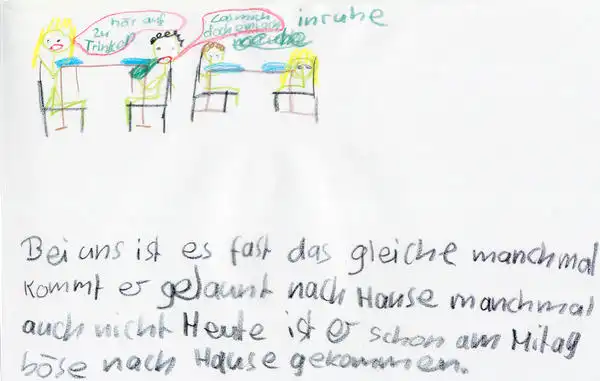 hör auf
zu
Trinken
Lass mich
doch einfach
inruhe
Bei uns ist es fast das gleiche manchmal
kommt er gelaunt nach Hause manchmal
auch nicht Heute ist er schon am Mitag
böse nach Hause gekommen.